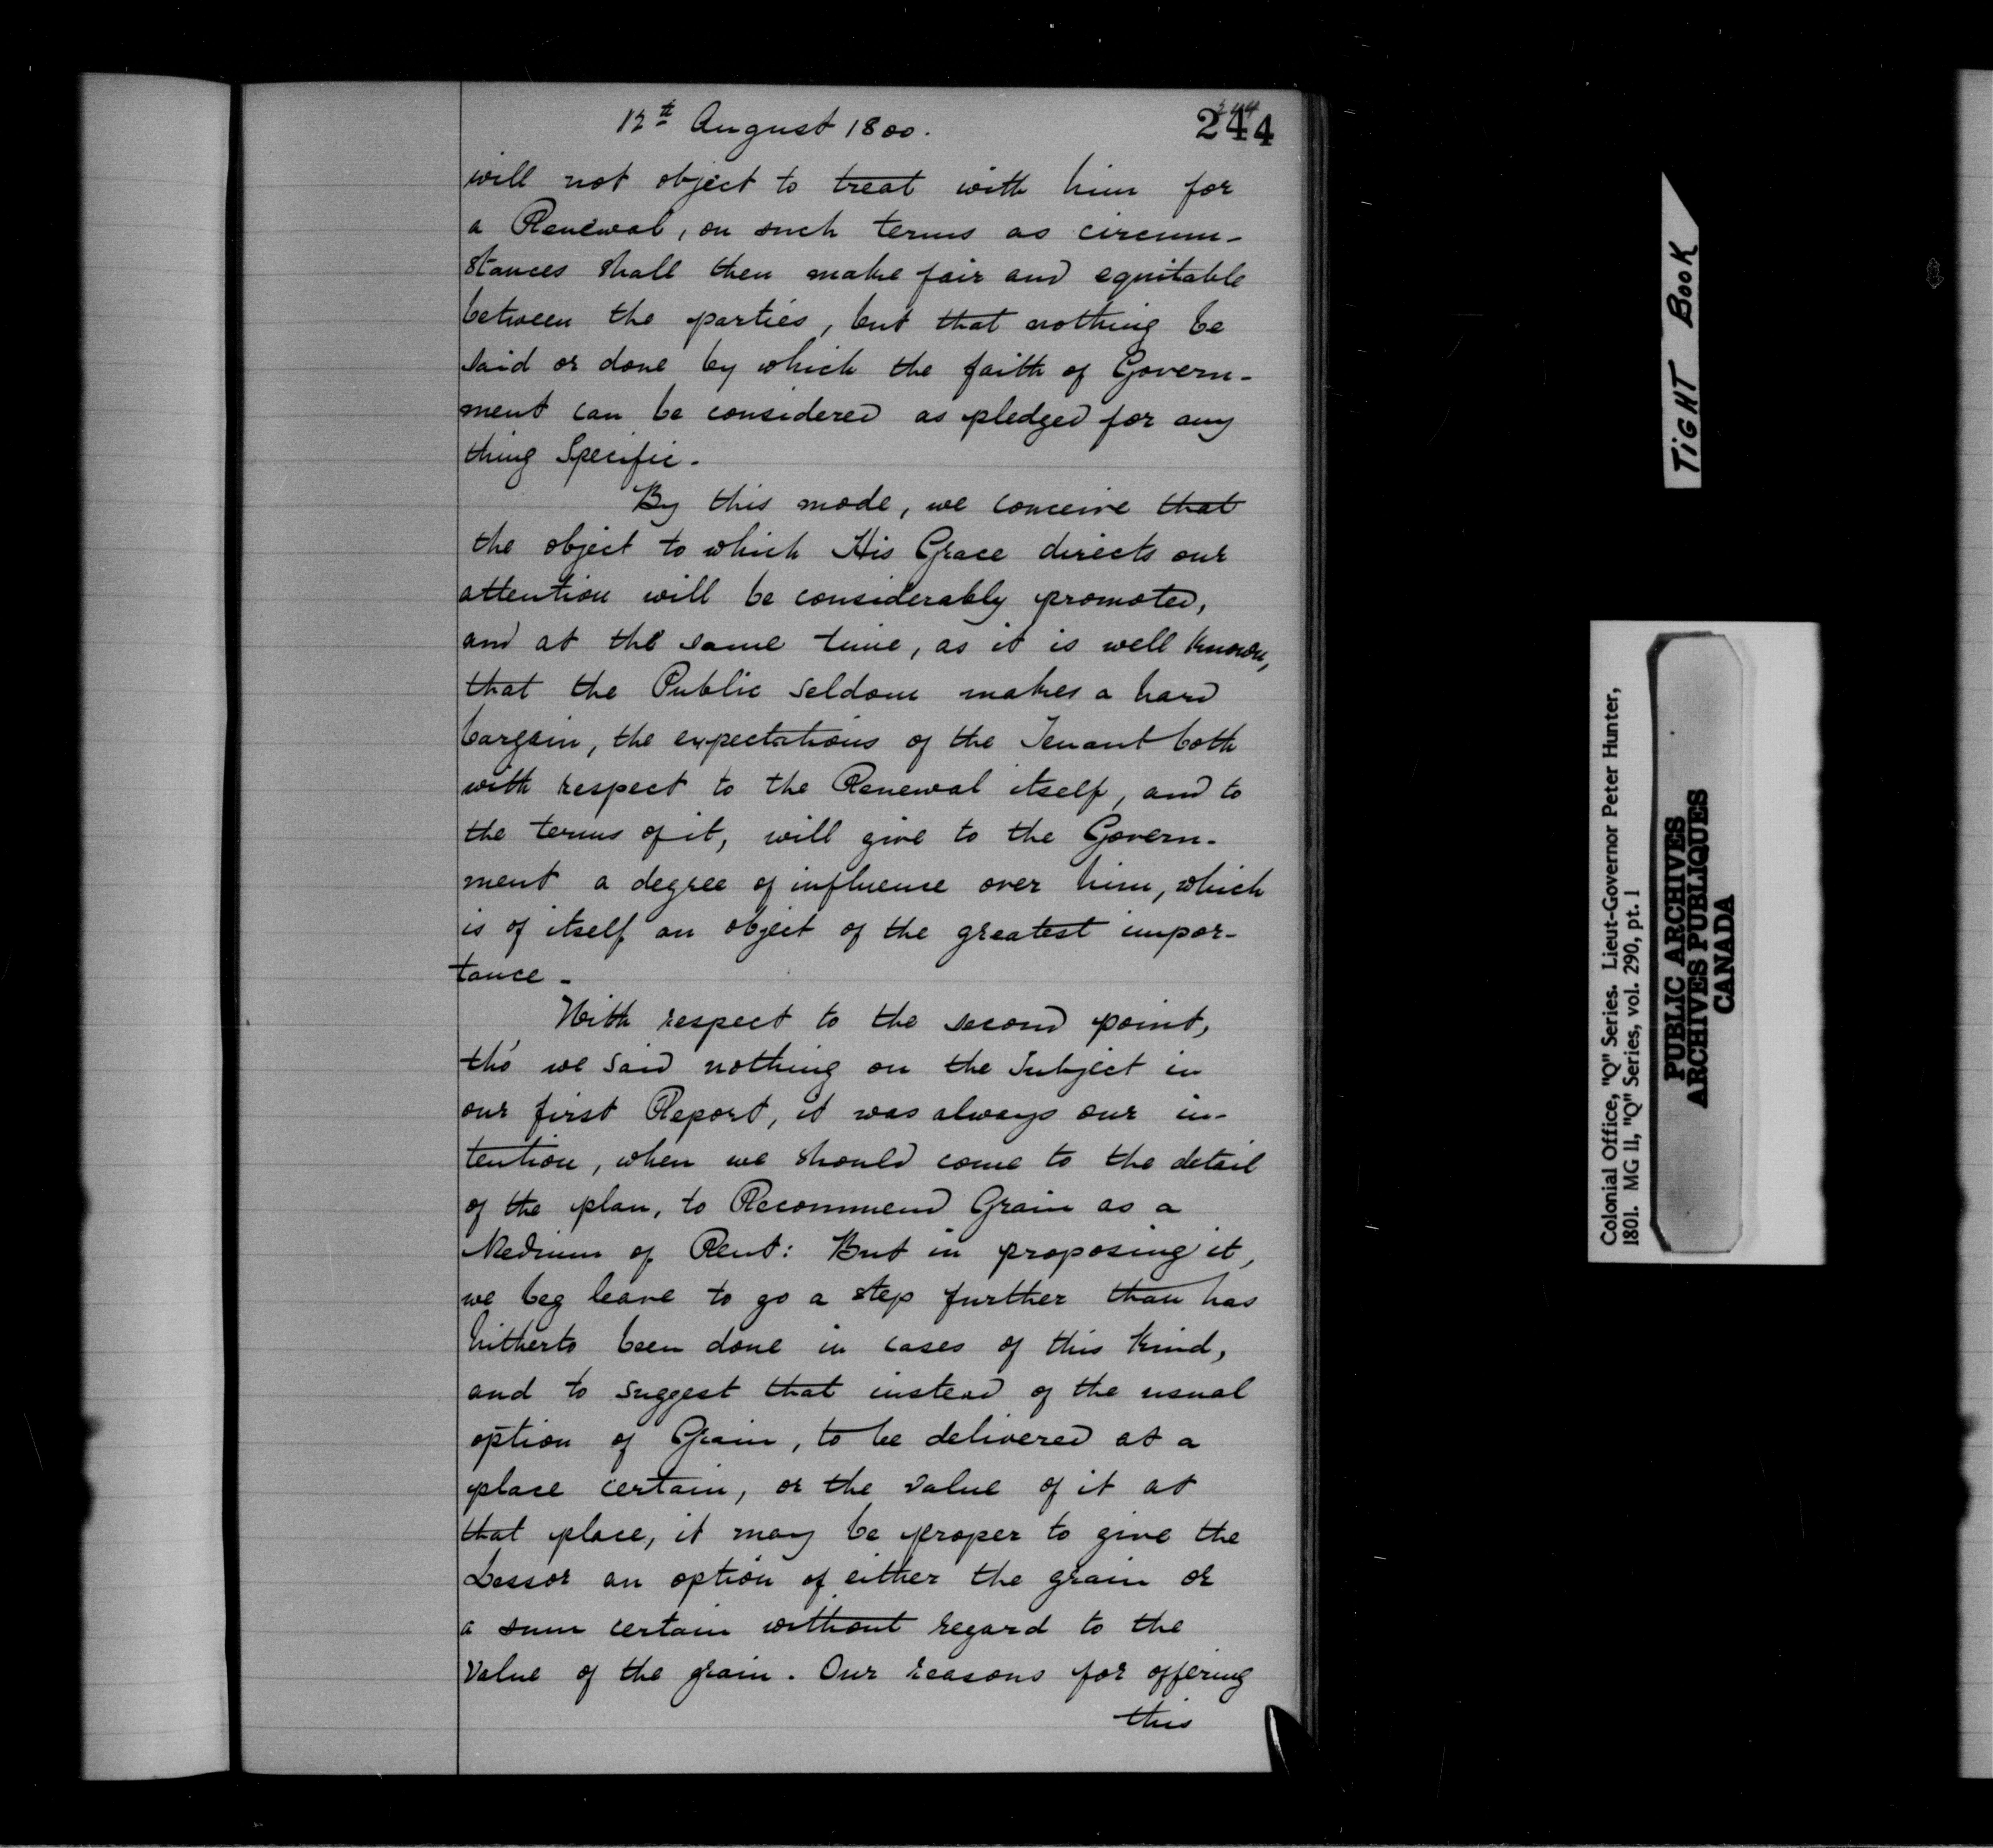 12th August 1800.
244
244
will not object to treat with him for
a Renewal, on such terms as circum-
stances shall then make fair and equitable
between the parties, but that nothing be
said or done by which the faith of Govern-
ment can be considered as pledged for any
thing Specific.
By this mode, we conceive that
the object to which His Grace directs our
attention will be considerably promoted,
and at the same time, as it is well known,
that the Public seldom makes a hard
bargain, the expectations of the Tenant both
with respect to the Renewal itself, and to
the terms of it, will give to the Govern-
ment a degree of influence over him, which
is of itself an object of the greatest impor-
tance -
With respect to the second point,
tho' we said nothing on the Subject in
our first Report, it was always our in-
tention, when we should come to the detail
of the plan, to Recommend Grain as a
Medium of Rent: But in proposing it,
we beg leave to go a step further than has
hitherto been done in cases of this kind,
and to suggest that instead of the usual
option of Grain, to be delivered at a
place certain, or the value of it at
that place, it may be proper to give the
Lessor an option of either the grain or
a sum certain without regard to the
Value of the grain. Our reasons for offering
this
TIGHT BOOK
Colonial Office, "Q" Series. Lieut-Governor Peter Hunter,
1801. MG 11, "Q" Series, vol. 290, pt. 1
PUBLIC ARCHIVES
ARCHIVES PUBLIQUES
CANADA